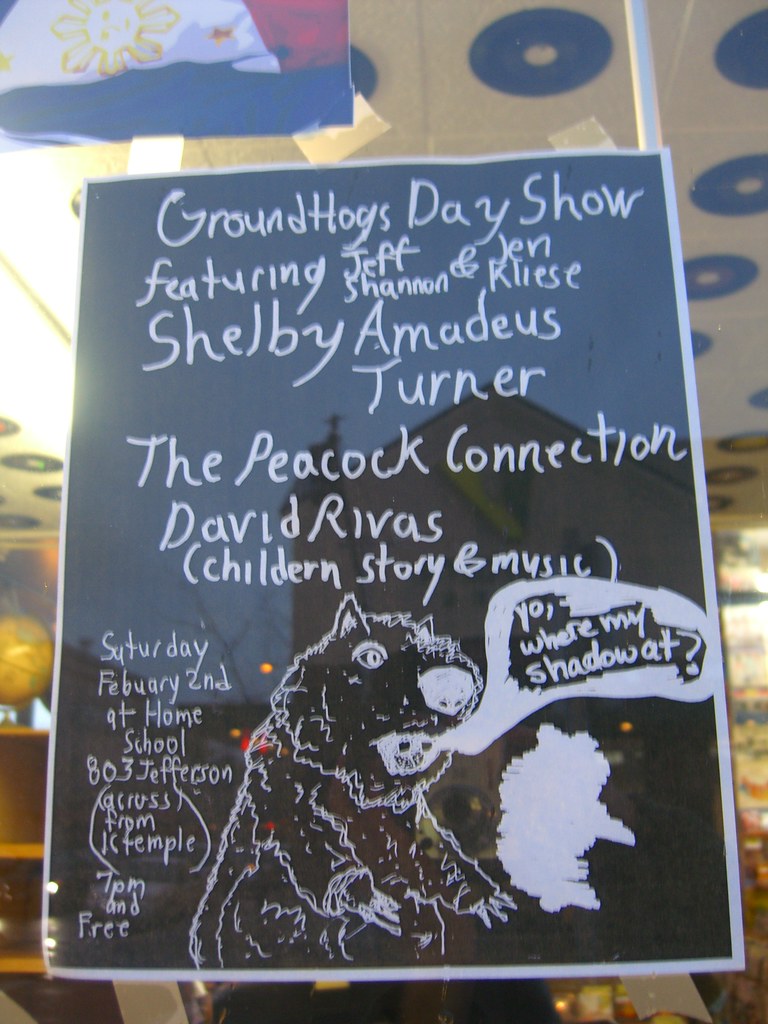 GroundHogs Day Show
featuring Jeff Shannon & Jen Kliese
Shelby Amadeus
Turner
The Peacock Connection
David Rivas
(childern story & music)
yo,
where my
shadow at?
Saturday
Febuary 2nd
at Home
School
803 Jefferson
(across
from
ICtemple)
7pm
and
Free